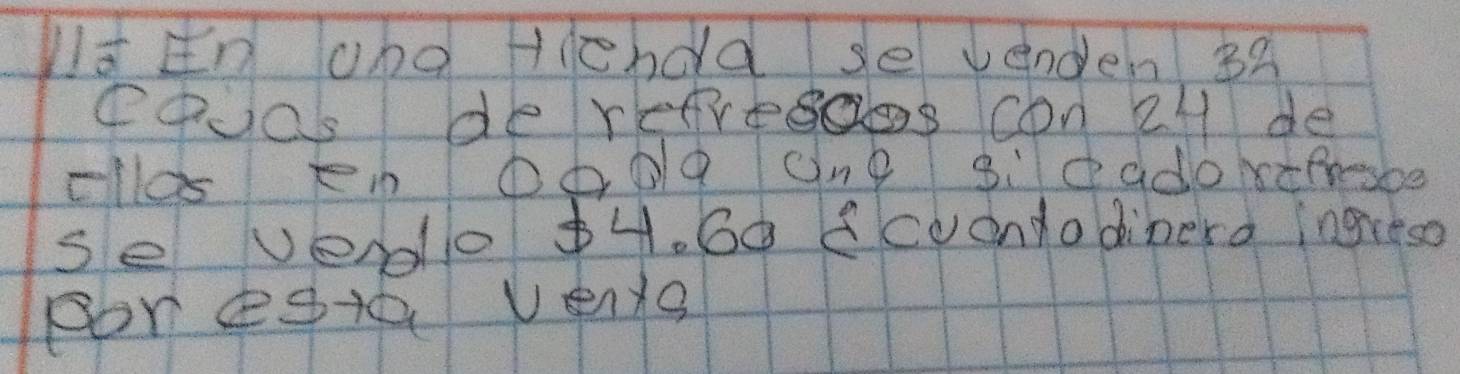 11= En una tienda se venden 32
cajas de refrescos con 24 de
ellos en cada una si cada refresco
se vendio $4.60 ¿cuanto dinero ingreso
por esta venta